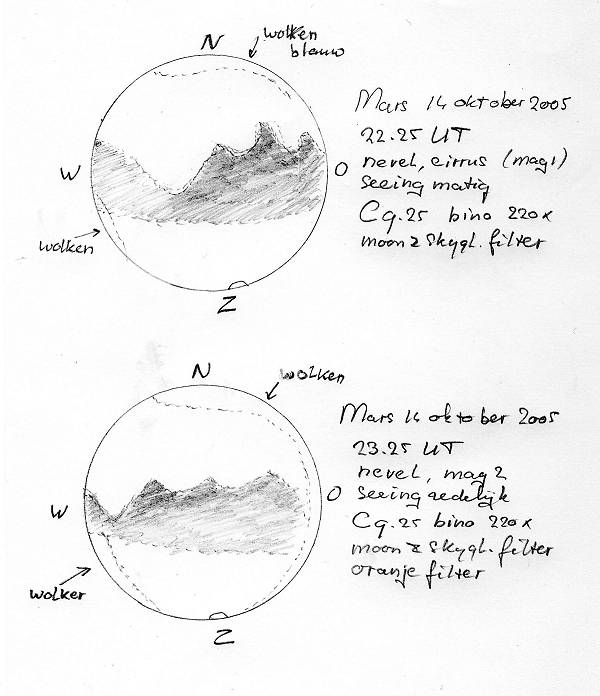 N
wolken
blauw
W
O
wolken
Z
Mars 14 oktober 2005
22.25 UT
nevel, cirrus (mag 1)
seeing matig
C9.25 bino 220x
moon & skygl. filter
N
wolken
W
O
wolken
Z
Mars 14 oktober 2005
23.25 UT
nevel, mag 2
seeing redelijk
C9.25 bino 220x
moon & skygl. filter
oranje filter